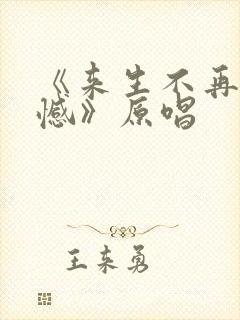 《来生不再
憾》原唱
王来勇